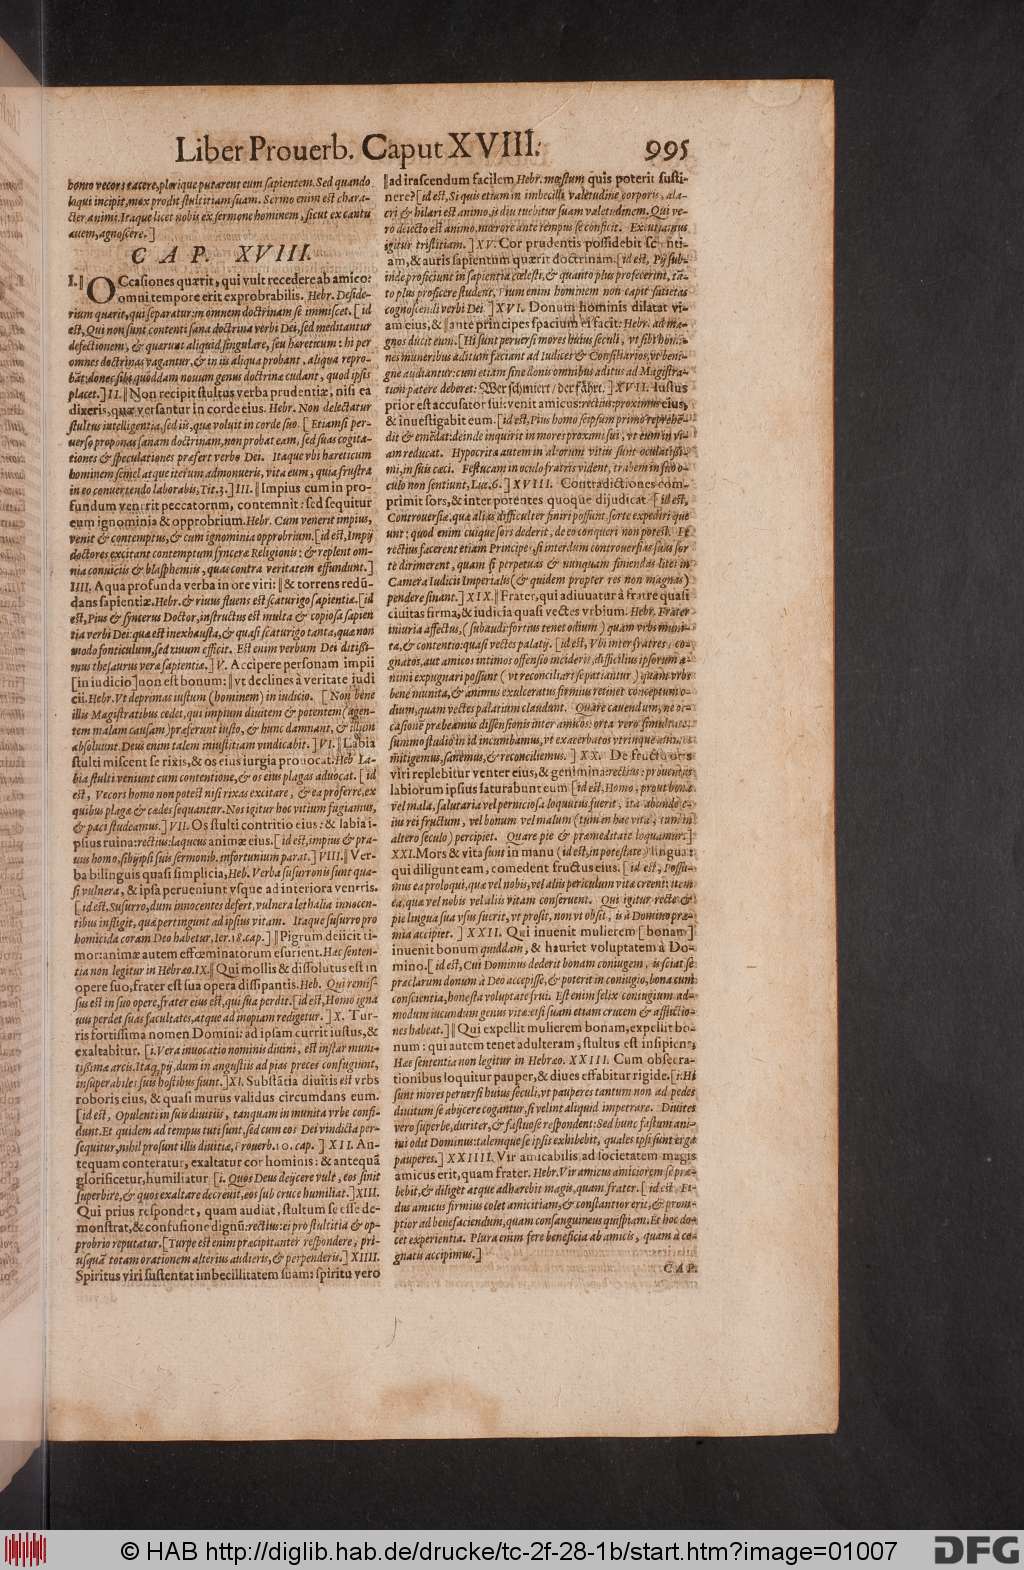 Liber Prouerb. Caput XVIII. 995
homo vecors tacere, plerique putarent eum sapientem. Sed quando
loqui incipit, mox prodit stultitiam suam. Sermo enim est chara-
cter animi. Itaque licet nobis ex sermone hominem, sicut ex cantu
auem, agnoscere. ]
CAP. XVIII.
I. ‖ OCcasiones quærit, qui vult recedere ab amico:
omni tempore erit exprobrabilis. Hebr. Deside-
rium quærit, qui separatur: in omnem doctrinam se immiscet. [ id
est, Qui non sunt contenti sana doctrina verbi Dei, sed meditantur
defectionem, & quærunt aliquid singulare, seu hæreticum: hi per
omnes doctrinas vagantur, & in iis aliqua probant, aliqua repro-
bãt: donec sibi quoddam nouum genus doctrinæ cudant, quod ipsis
placet. ] II. ‖ Non recipit stultus verba prudentiæ, nisi ea
dixeris, quæ versantur in corde eius. Hebr. Non delectatur
stultus intelligentia, sed iis, quæ voluit in corde suo. [ Etiamsi per-
uerso proponas sanam doctrinam, non probat eam, sed suas cogita-
tiones & speculationes præfert verbo Dei. Itaque vbi hæreticum
hominem semel atque iterum admonueris, vita eum, quia frustra
in eo conuertendo laborabis, Tit. 3. ] III. ‖ Impius cum in pro-
fundum venerit peccatorum, contemnit: sed sequitur
eum ignominia & opprobrium. Hebr. Cum venerit impius,
venit & contemptus, & cum ignominia opprobrium. [ id est, Impij
doctores excitant contemptum synceræ Religionis: & replent om-
nia conuiciis & blasphemiis, quas contra veritatem effundunt. ]
IIII. Aqua profunda verba in ore viri: ‖ & torrens redũ-
dans sapientiæ. Hebr. & riuus fluens est scaturigo sapientiæ. [ id
est, Pius & syncerus Doctor, instructus est multa & copiosa sapien
tia verbi Dei: quæ est inexhausta, & quasi scaturigo tanta, quæ non
modo fonticulum, sed riuum efficit. Est enim verbum Dei ditissi-
mus thesaurus veræ sapientiæ, ] V. Accipere personam impii
[in iudicio] non est bonum: ‖ vt declines à veritate judi
cii. Hebr. Vt deprimas iustum (hominem) in iudicio. [ Non bene
illis Magistratibus cedet, qui impium diuitem & potentem (agen-
tem malam causam) præferunt iusto, & hunc damnant, & illum
absoluunt. Deus enim talem iniustitiam vindicabit. ] VI. ‖ Labia
stulti miscent se rixis, & os eius iurgia prouocat. Heb. La-
bia stulti veniunt cum contentione, & os eius plagas aduocat. [ id
est, Vecors homo non potest nisi rixas excitare, & ea proferre, ex
quibus plagæ & cædes sequantur. Nos igitur hoc vitium fugiamus,
& paci studeamus. ] VII. Os stulti contritio eius: & labia i-
psius ruina: rectius: laqueus animæ eius. [ id est, impius & pra-
uus homo, sibijpsi suis sermonib. infortunium parat. ] VIII. ‖ Ver-
ba bilinguis quasi simplicia, Heb. Verba susurronis sunt qua-
si vulnera, & ipsa perueniunt vsque ad interiora ventris.
[ id est, Susurro, dum innocentes defert, vulnera lethalia innocen-
tibus infligit, quæ pertingunt ad ipsius vitam. Itaque susurro pro
homicida coram Deo habetur, Ier. 18. cap. ] ‖ Pigrum deiicit ti-
mor: animæ autem effœminatorum esurient. Hæc senten-
tia non legitur in Hebræo. IX. ‖ Qui mollis & dissolutus est in
opere suo, frater est sua opera dissipantis. Heb. Qui remis-
sus est in suo opere, frater eius est, qui sua perdit. [ id est, Homo igna
uus perdet suas facultates, atque ad inopiam redigetur. ] X. Tur-
ris fortissima nomen Domini: ad ipsam currit iustus, &
exaltabitur. [ i. Vera inuocatio nominis diuini, est instar muni-
tissimæ arcis. Itaq; pij, dum in angustiis ad pias preces confugiunt,
insuperabiles suis hostibus fiunt. ] XI. Substãtia diuitis est vrbs
roboris eius, & quasi murus validus circumdans eum.
[ id est, Opulenti in suis diuitiis, tanquam in munita vrbe confi-
dunt. Et quidem ad tempus tuti sunt, sed cum eos Dei vindicta per-
sequitur, nihil prosunt illis diuitiæ, Prouerb. 10. cap. ] XII. An-
tequam conteratur, exaltatur cor hominis: & antequã
glorificetur, humiliatur [ i. Quos Deus deijcere vult, eos sinit
superbire, & quos exaltare decreuit, eos sub cruce humiliat. ] XIII.
Qui prius respondet, quam audiat, stultum se esse de-
monstrat, & confusione dignũ: rectius: ei pro stultitia & op-
probrio reputatur. [ Turpe est enim præcipitanter respondere, pri-
usquã totam orationem alterius audieris, & perpenderis. ] XIIII.
Spiritus viri sustentat imbecillitatem suam: spiritũ vero
‖ ad irascendum facilem Hebr. mœstum quis poterit susti-
nere? [ id est, Si quis etiam in imbecilli valetudine corporis, ala-
cri & hilari est animo, is diu tuebitur suam valetudinem. Qui ve-
ro deiecto est animo, mœrore ante tempus se conficit. Excutiamus
igitur tristitiam. ] XV. Cor prudentis possidebit scienti-
am, & auris sapientum quærit doctrinam. [ id est, Pij sub-
inde proficiunt in sapientia cœlesti, & quanto plus profecerint, tã-
to plus proficere student, Pium enim hominem non capit satietas
cognoscendi verbi Dei ] XVI. Donum hominis dilatat vi-
am eius, & ‖ ante principes spacium ei facit: Hebr. ad ma-
gnos ducit eum. [ Hi sunt peruersi mores huius seculi, vt sibi homi-
nes muneribus aditum faciant ad Iudices & Consiliarios, vt beni-
gne audiantur: cum etiam sine donis omnibus aditus ad Magistra-
tum patere deberet: Wer schmiert / der fährt. ] XVII. Iustus
prior est accusator sui: venit amicus: rectius: proximus eius,
& inuestigabit eum. [ id est, Pius homo seipsum primo reprehẽ-
dit & emẽdat: deinde inquirit in mores proximi sui, vt eum in vi-
am reducat. Hypocritæ autem in aliorum vitiis sunt oculatissi-
mi, in suis cæci. Festucam in oculo fratris vident, trabem in suo o-
culo non sentiunt, Luc. 6. ] XVIII. Contradictiones com-
primit sors, & inter potentes quoque dijudicat. [ id est,
Controuersiæ, quæ alias difficulter finiri possunt, sorte expediri que
unt: quod enim cuique sors dederit, de eo conqueri non potest. Et
rectius facerent etiam Principes, si interdum controuersias suas sor
te dirimerent, quam si perpetuas & nunquam finiendas lites in
Camera Iudicii Imperialis (& quidem propter res non magnas)
pendere sinant. ] XIX. ‖ Frater, qui adiuuatur à fratre quasi
ciuitas firma, & iudicia quasi vectes vrbium. Hebr. Frater
iniuria affectus, (subaudi: fortius tenet odium) quam vrbs muni-
ta, & contentio: quasi vectes palatij. [ id est, Vbi inter fratres, co-
gnatos, aut amicos intimos offensio inciderit, difficilius ipsorum a-
nimi expugnari possunt (vt reconciliari se patiantur) quam vrbs
bene munita, & animus exulceratus firmius retinet conceptum o-
dium, quam vectes palatium claudunt. Quare cauendum, ne oc-
casionẽ præbeamus dissensionis inter amicos: orta vero simultate,
summo studio in id incumbamus, vt exacerbatos vtrinque animos
mitigemus, sanemus, & reconciliemus. ] XX. De fructu oris
viri replebitur venter eius, & genimina: rectius: prouentus
labiorum ipsius saturabunt eum [ id est, Homo, prout bona
vel mala, salutaria vel perniciosa loquutus fuerit, ita abunde e-
ius rei fructum, vel bonum vel malum (tum in hac vita, tum in
altero seculo) percipiet. Quare pie & præmeditate loquamur. ]
XXI. Mors & vita sunt in manu (id est, in potestate) linguæ:
qui diligunt eam, comedent fructus eius. [ id est, Possu-
mus ea proloqui, quæ vel nobis, vel aliis periculum vitæ creent: item
ea, quæ vel nobis vel aliis vitam conseruent. Qui igitur recte &
pie lingua sua vsus fuerit, vt prosit, non vt obsit, is à Domino præ-
mia accipiet. ] XXII. Qui inuenit mulierem [ bonam ]
inuenit bonum quiddam, & hauriet voluptatem à Do-
mino. [ id est, Cui Dominus dederit bonam coniugem, is sciat se
præclarum donum à Deo accepisse, & poterit in coniugio, bona cum
conscientia, honesta voluptate frui. Est enim felix coniugium ad-
modum iucundum genus vitæ: etsi suam etiam crucem & afflictio-
nes habeat. ] ‖ Qui expellit mulierem bonam, expellit bo-
num: qui autem tenet adulteram, stultus est insipiens.
Hæc sententia non legitur in Hebræo. XXIII. Cum obsecra-
tionibus loquitur pauper, & diues effabitur rigide. [ i. Hi
sunt mores peruersi huius seculi, vt pauperes tantum non ad pedes
diuitum se abijcere cogantur, si velint aliquid impetrare. Diuites
vero superbe, duriter, & fastuose respondent: Sed hunc fastum ani-
mi odit Dominus: talemque se ipsis exhibebit, quales ipsi sunt erga
pauperes. ] XXIIII. Vir amicabilis ad societatem magis
amicus erit, quam frater. Hebr. Vir amicus amiciorem se præ-
bebit, & diliget atque adhærebit magis, quam frater. [ id est, Fi-
dus amicus firmius colet amicitiam, & constantior erit, & prom-
ptior ad benefaciendum, quam consanguineus quispiam. Et hoc do-
cet experientia. Plura enim fere beneficia ab amicis, quam à co-
gnatis accipimus. ]
CAP.
© HAB http://diglib.hab.de/drucke/tc-2f-28-1b/start.htm?image=01007
DFG